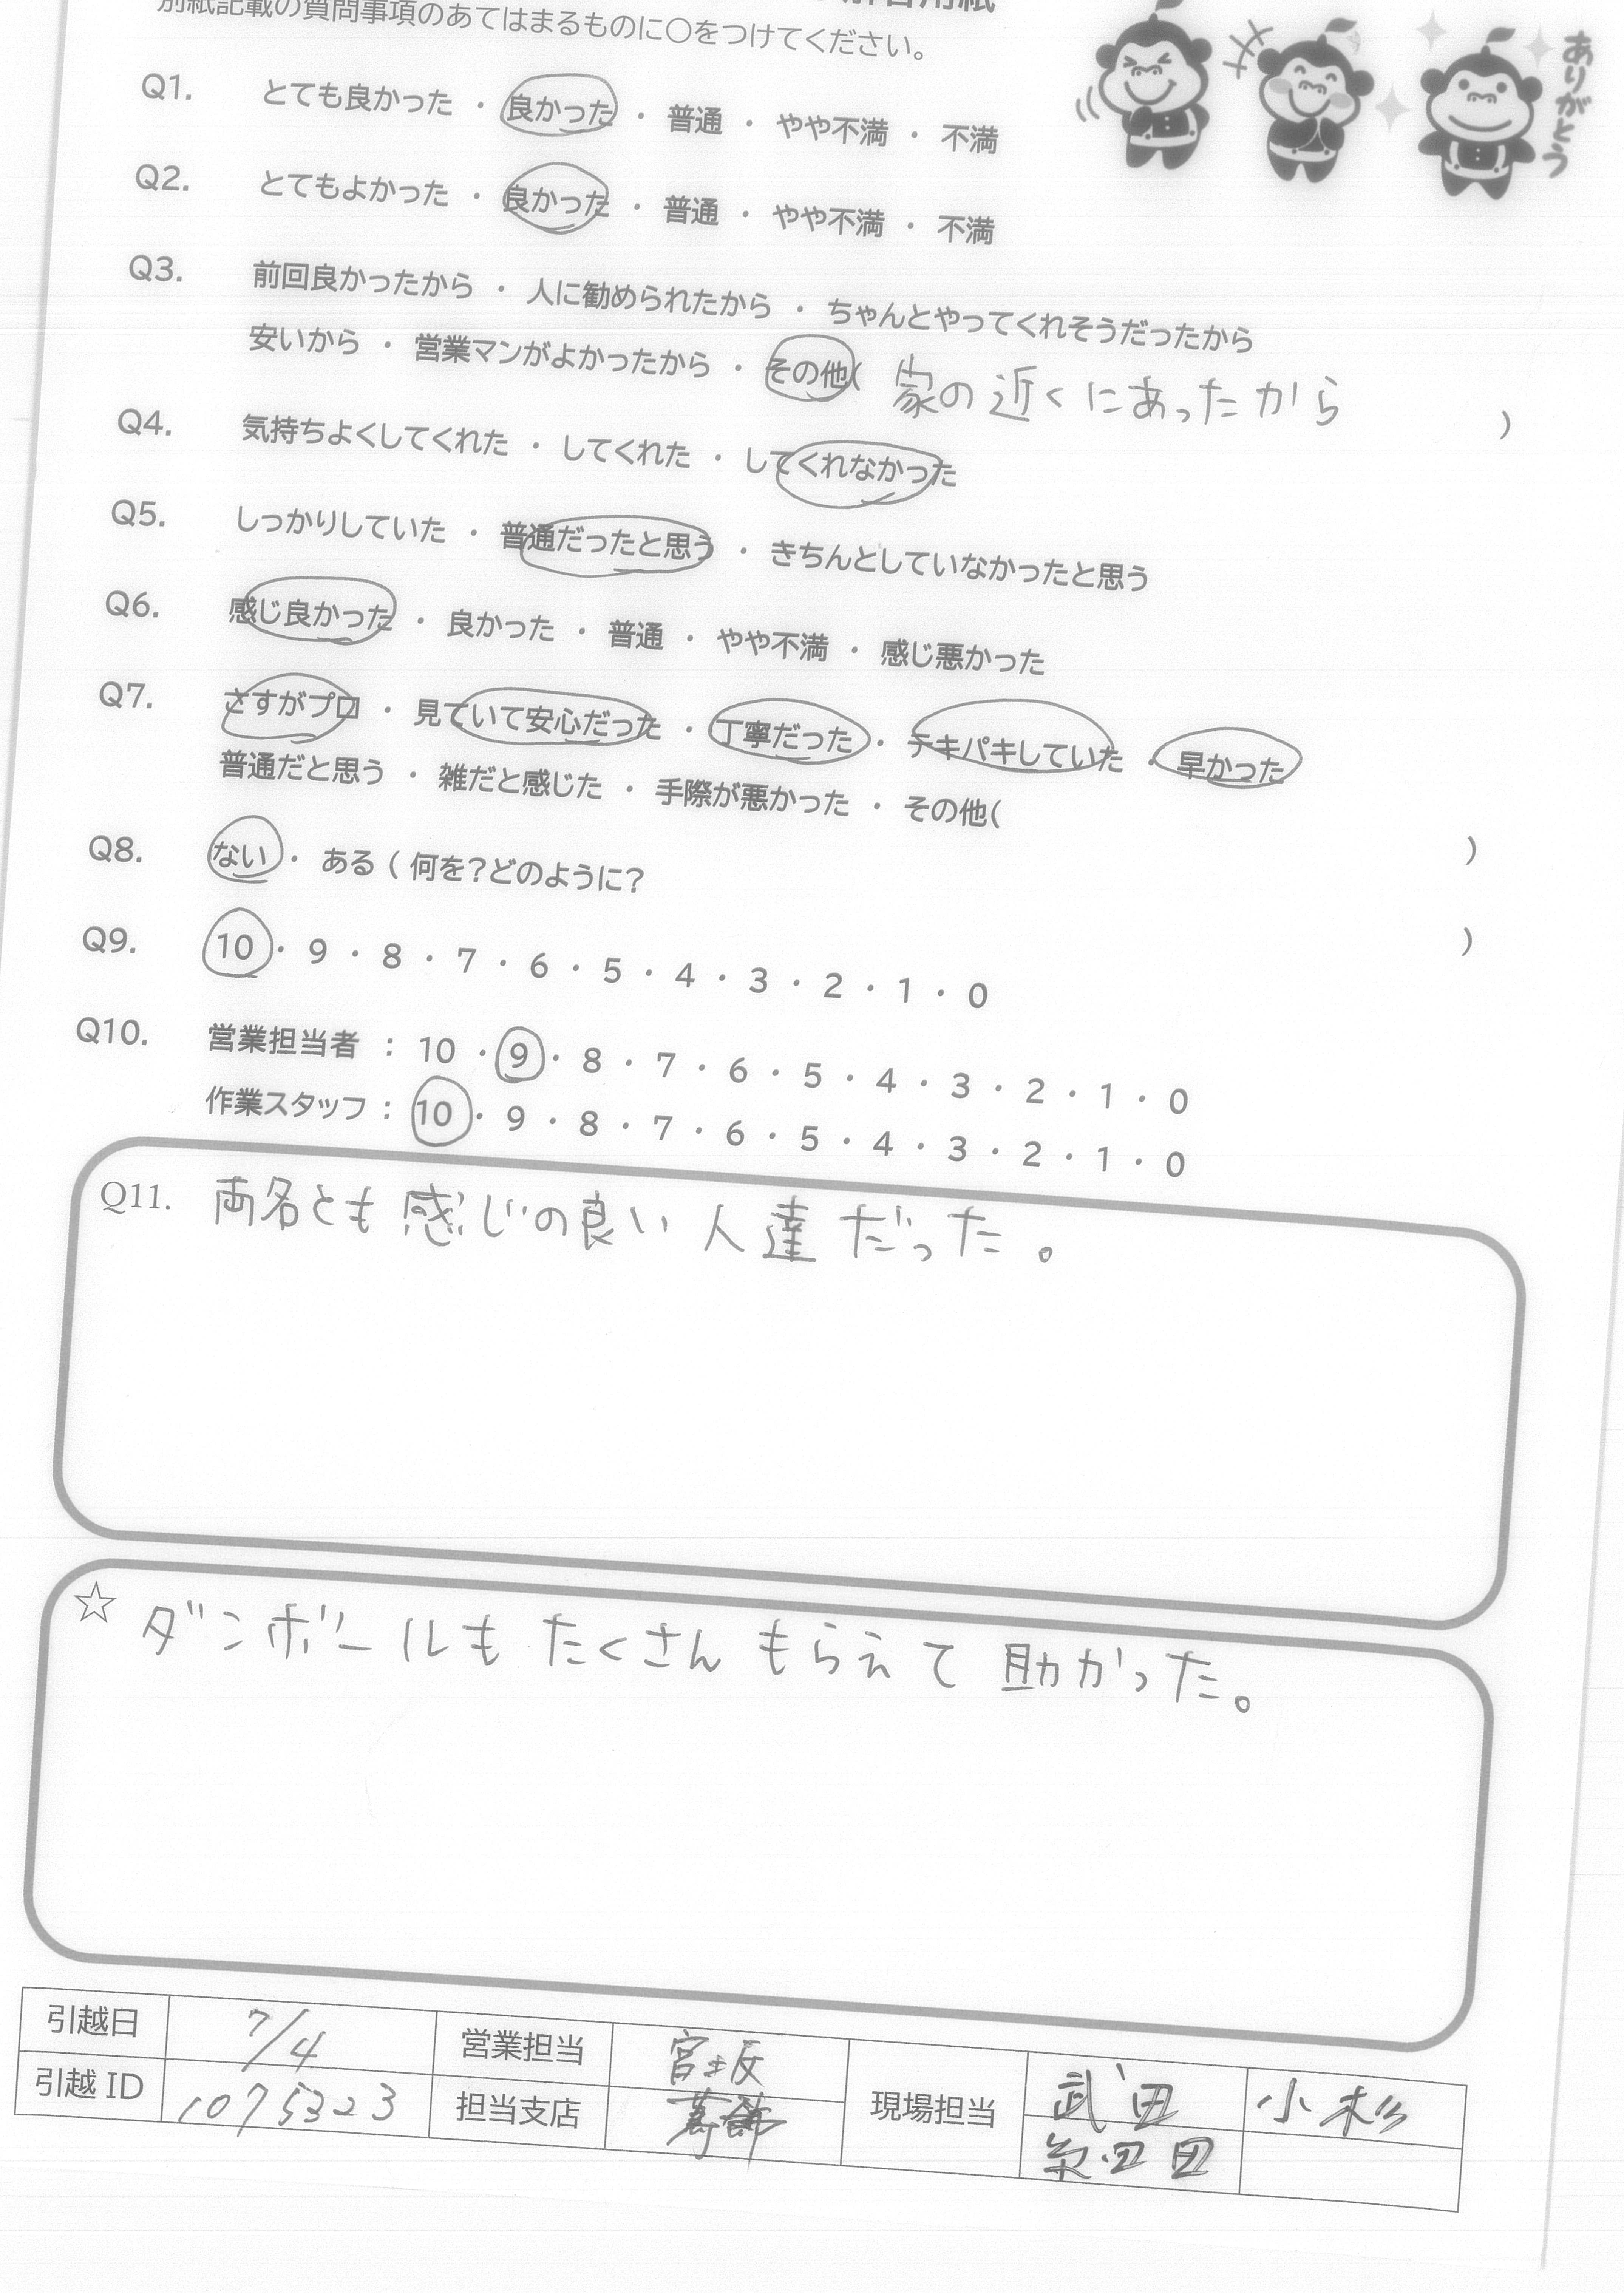 別紙記載の質問事項のあてはまるものに○をつけてください。
ありがとう
Q1. とても良かった ・ 良かった ・ 普通 ・ やや不満 ・ 不満
Q2. とてもよかった ・ 良かった ・ 普通 ・ やや不満 ・ 不満
Q3. 前回良かったから ・ 人に勧められたから ・ ちゃんとやってくれそうだったから
安いから ・ 営業マンがよかったから ・ その他( 家の近くにあったから )
Q4. 気持ちよくしてくれた ・ してくれた ・ してくれなかった
Q5. しっかりしていた ・ 普通だったと思う ・ きちんとしていなかったと思う
Q6. 感じ良かった ・ 良かった ・ 普通 ・ やや不満 ・ 感じ悪かった
Q7. さすがプロ ・ 見ていて安心だった ・ 丁寧だった ・ テキパキしていた ・ 早かった
普通だと思う ・ 雑だと感じた ・ 手際が悪かった ・ その他( )
Q8. ない ・ ある ( 何を?どのように? )
Q9. 10 ・ 9 ・ 8 ・ 7 ・ 6 ・ 5 ・ 4 ・ 3 ・ 2 ・ 1 ・ 0
Q10. 営業担当者 : 10 ・ 9 ・ 8 ・ 7 ・ 6 ・ 5 ・ 4 ・ 3 ・ 2 ・ 1 ・ 0
作業スタッフ : 10 ・ 9 ・ 8 ・ 7 ・ 6 ・ 5 ・ 4 ・ 3 ・ 2 ・ 1 ・ 0
Q11. 両名とも感じの良い人達だった。
☆ ダンボールもたくさんもらえて助かった。
引越日 7/4 営業担当 現場担当 武田 小杉
引越ID 1075323 担当支店 葛飾